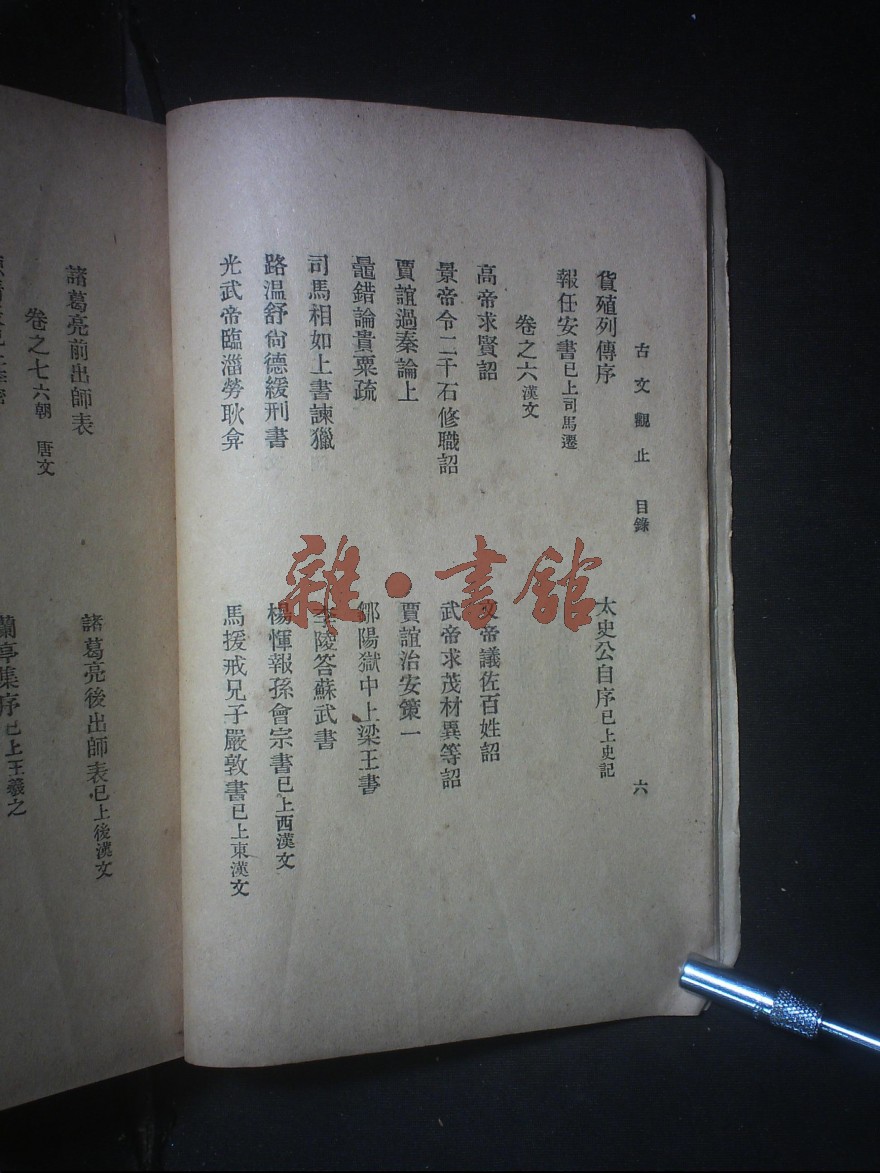 古文觀止 目錄 六
貨殖列傳序 太史公自序已上史記
報任安書已上司馬遷
卷之六漢文
高帝求賢詔 文帝議佐百姓詔
景帝令二千石修職詔 武帝求茂材異等詔
賈誼過秦論上 賈誼治安策一
鼂錯論貴粟疏 鄒陽獄中上梁王書
司馬相如上書諫獵 李陵答蘇武書
路溫舒尙德緩刑書 楊惲報孫會宗書已上西漢文
光武帝臨淄勞耿弇 馬援戒兄子嚴敦書已上東漢文
諸葛亮前出師表 諸葛亮後出師表已上後漢文
卷之七六朝 唐文
蘭亭集序已上王羲之
雜·書館